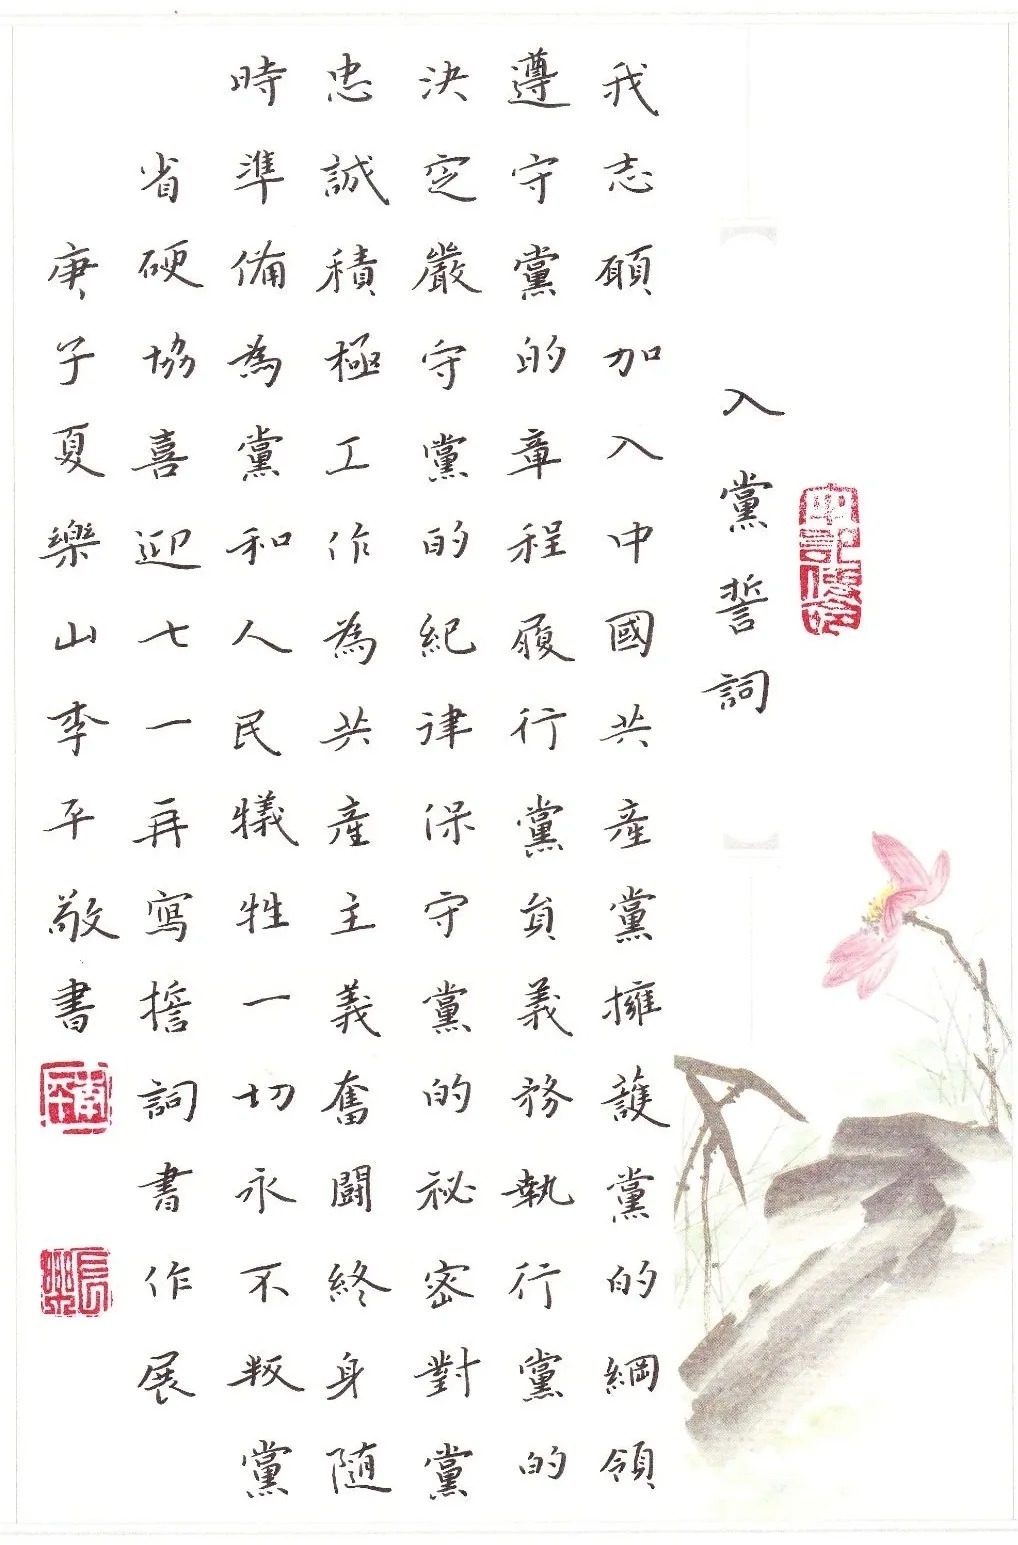 牢記使命
入黨誓詞
我志願加入中國共產黨擁護黨的綱領
遵守黨的章程履行黨員義務執行黨的
決定嚴守黨的紀律保守黨的祕密對黨
忠誠積極工作為共產主義奮闘終身隨
時準備為黨和人民犧牲一切永不叛黨
省硬協喜迎七一再寫誓詞書作展
庚子夏樂山李平敬書